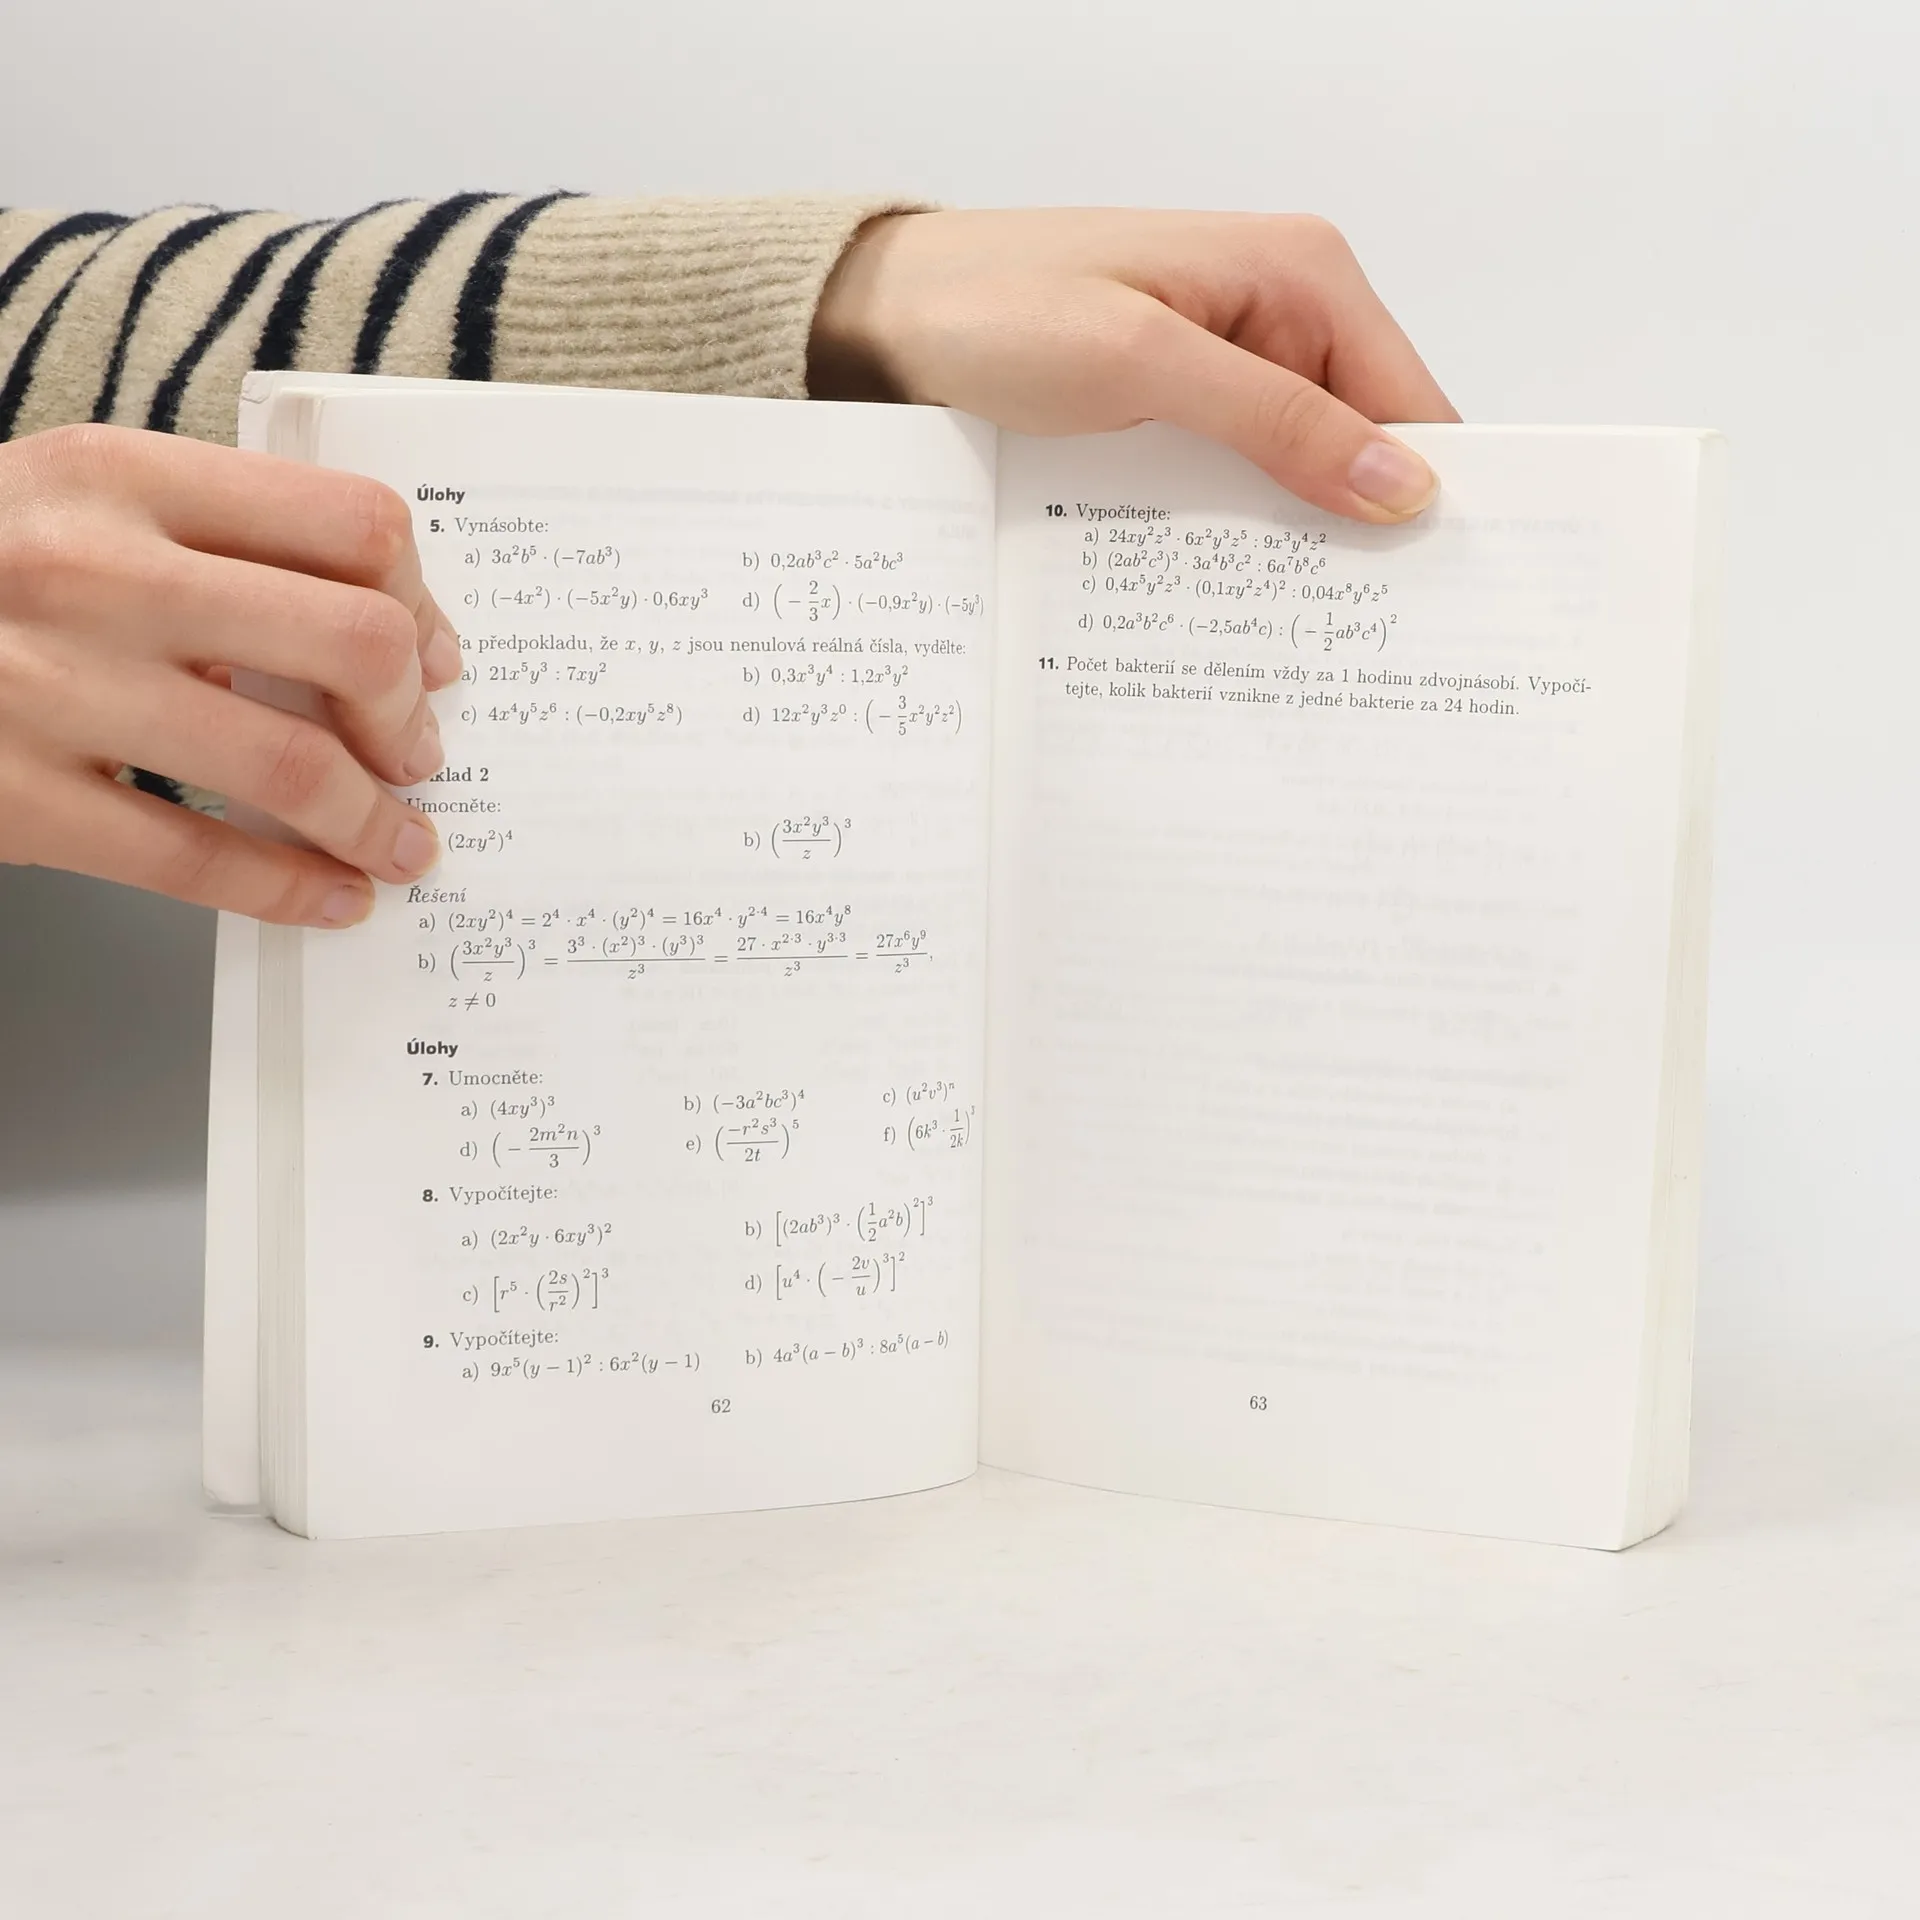 Úlohy
5. Vynásobte:
a) 3a²b⁵ · (−7ab³) b) 0,2ab³c² · 5a²bc³
c) (−4x²) · (−5x²y) · 0,6xy³ d) (−2/3x) · (−0,9x²y) · (−5y³)
a předpokladu, že x, y, z jsou nenulová reálná čísla, vydělte:
a) 21x⁵y³ : 7xy² b) 0,3x³y⁴ : 1,2x³y²
c) 4x⁴y⁵z⁶ : (−0,2xy⁵z⁸) d) 12x²y³z⁰ : (−3/5x²y²z²)
klad 2
Umocněte:
(2xy²)⁴ b) (3x²y³/z)³
Řešení
a) (2xy²)⁴ = 2⁴ · x⁴ · (y²)⁴ = 16x⁴ · y²·⁴ = 16x⁴y⁸
b) (3x²y³/z)³ = 3³ · (x²)³ · (y³)³/z³ = 27 · x²·³ · y³·³/z³ = 27x⁶y⁹/z³,
z ≠ 0
Úlohy
7. Umocněte:
a) (4xy³)³ b) (−3a²bc³)⁴ c) (u²v³)ⁿ
d) (−2m²n/3)³ e) (−r²s³/2t)⁵ f) (6k³ · 1/2k)³
8. Vypočítejte:
a) (2x²y · 6xy³)² b) [(2ab³)³ · (1/2a²b)²]³
c) [r⁵ · (2s/r²)²]³ d) [u⁴ · (−2v/u)³]²
9. Vypočítejte:
a) 9x⁵(y − 1)² : 6x²(y − 1) b) 4a³(a − b)³ : 8a⁵(a − b)
62
10. Vypočítejte:
a) 24xy²z³ · 6x²y³z⁵ : 9x³y⁴z²
b) (2ab²c³)³ · 3a⁴b³c² : 6a⁷b⁸c⁶
c) 0,4x⁵y²z³ · (0,1xy²z⁴)² : 0,04x⁸y⁶z⁵
d) 0,2a³b²c⁶ · (−2,5ab⁴c) : (−1/2ab³c⁴)²
11. Počet bakterií se dělením vždy za 1 hodinu zdvojnásobí. Vypočí-
tejte, kolik bakterií vznikne z jedné bakterie za 24 hodin.
63